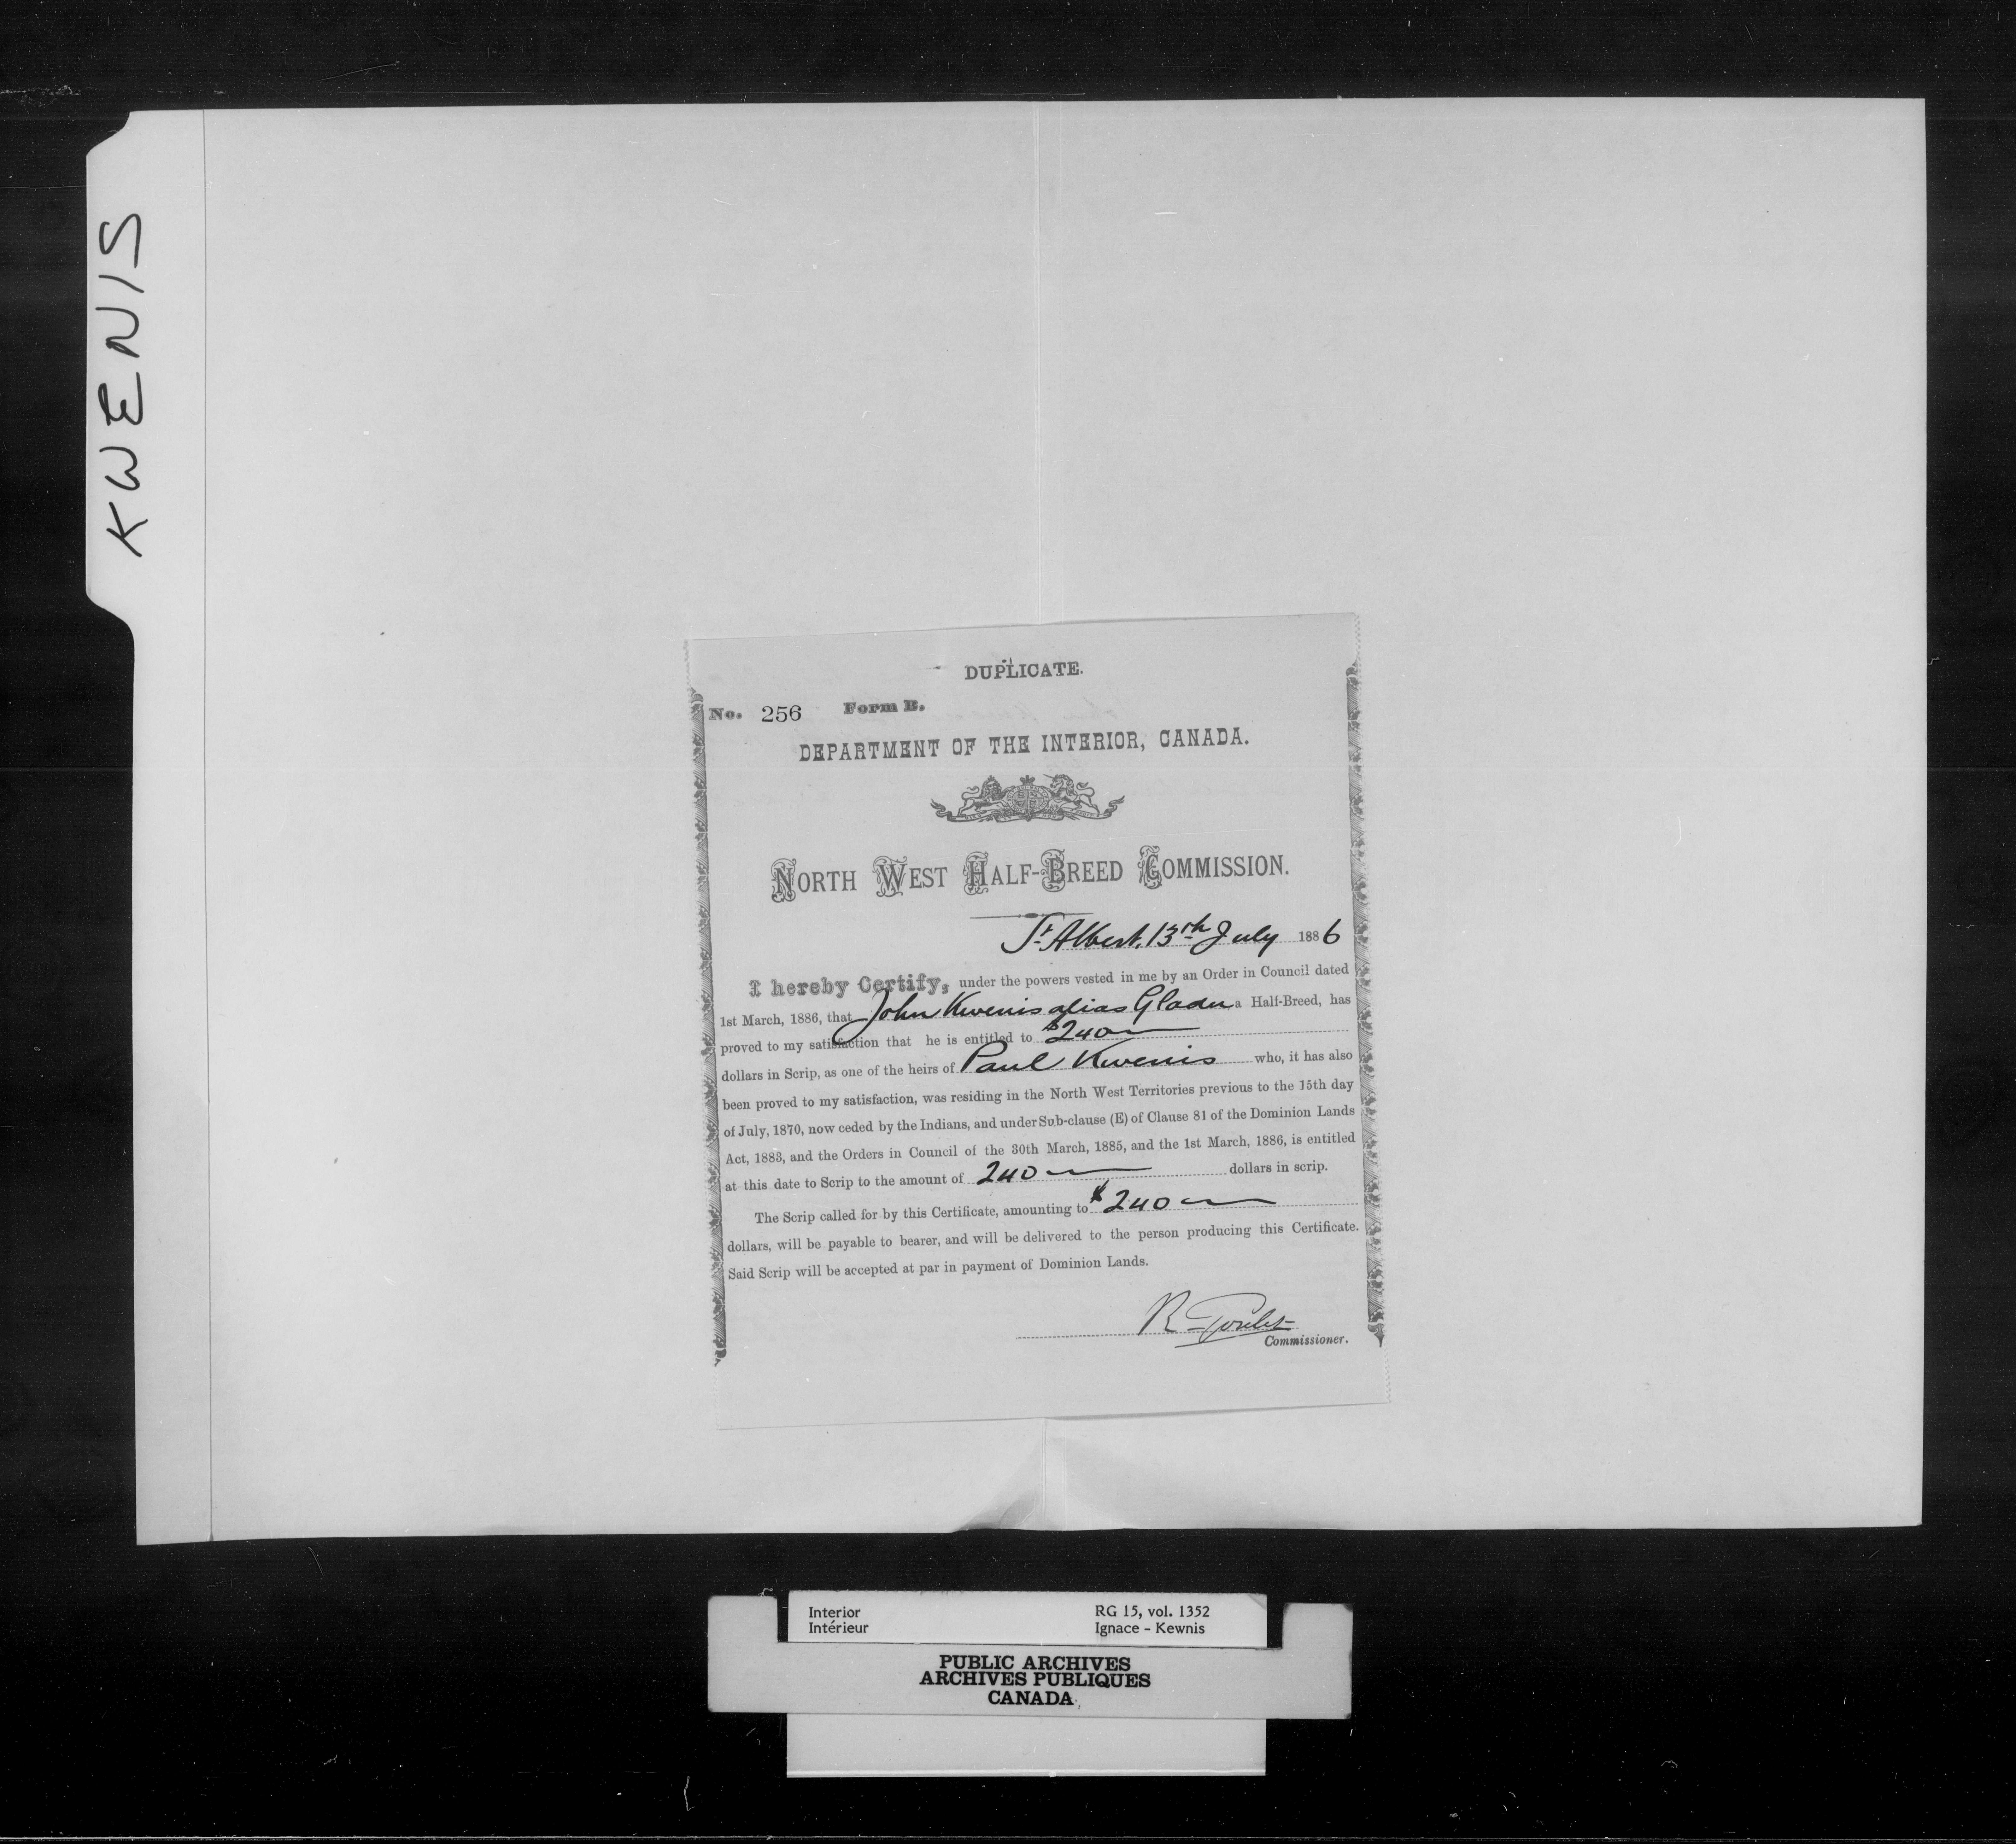 KWENIS
DUPLICATE.
No. 256 Form B.
DEPARTMENT OF THE INTERIOR, CANADA.
NORTH WEST HALF-BREED COMMISSION.
St. Albert, 13th July 1886
I hereby Certify, under the powers vested in me by an Order in Council dated
1st March, 1886, that John Kwenis alias Gladu a Half-Breed, has
proved to my satisfaction that he is entitled to $240
dollars in Scrip, as one of the heirs of Paul Kwenis who, it has also
been proved to my satisfaction, was residing in the North West Territories previous to the 15th day
of July, 1870, now ceded by the Indians, and under Sub-clause (E) of Clause 81 of the Dominion Lands
Act, 1883, and the Orders in Council of the 30th March, 1885, and the 1st March, 1886, is entitled
at this date to Scrip to the amount of 240 dollars in scrip.
The Scrip called for by this Certificate, amounting to $240
dollars, will be payable to bearer, and will be delivered to the person producing this Certificate.
Said Scrip will be accepted at par in payment of Dominion Lands.
R Goulet
Commissioner.
Interior RG 15, vol. 1352
Intérieur Ignace - Kewnis
PUBLIC ARCHIVES
ARCHIVES PUBLIQUES
CANADA